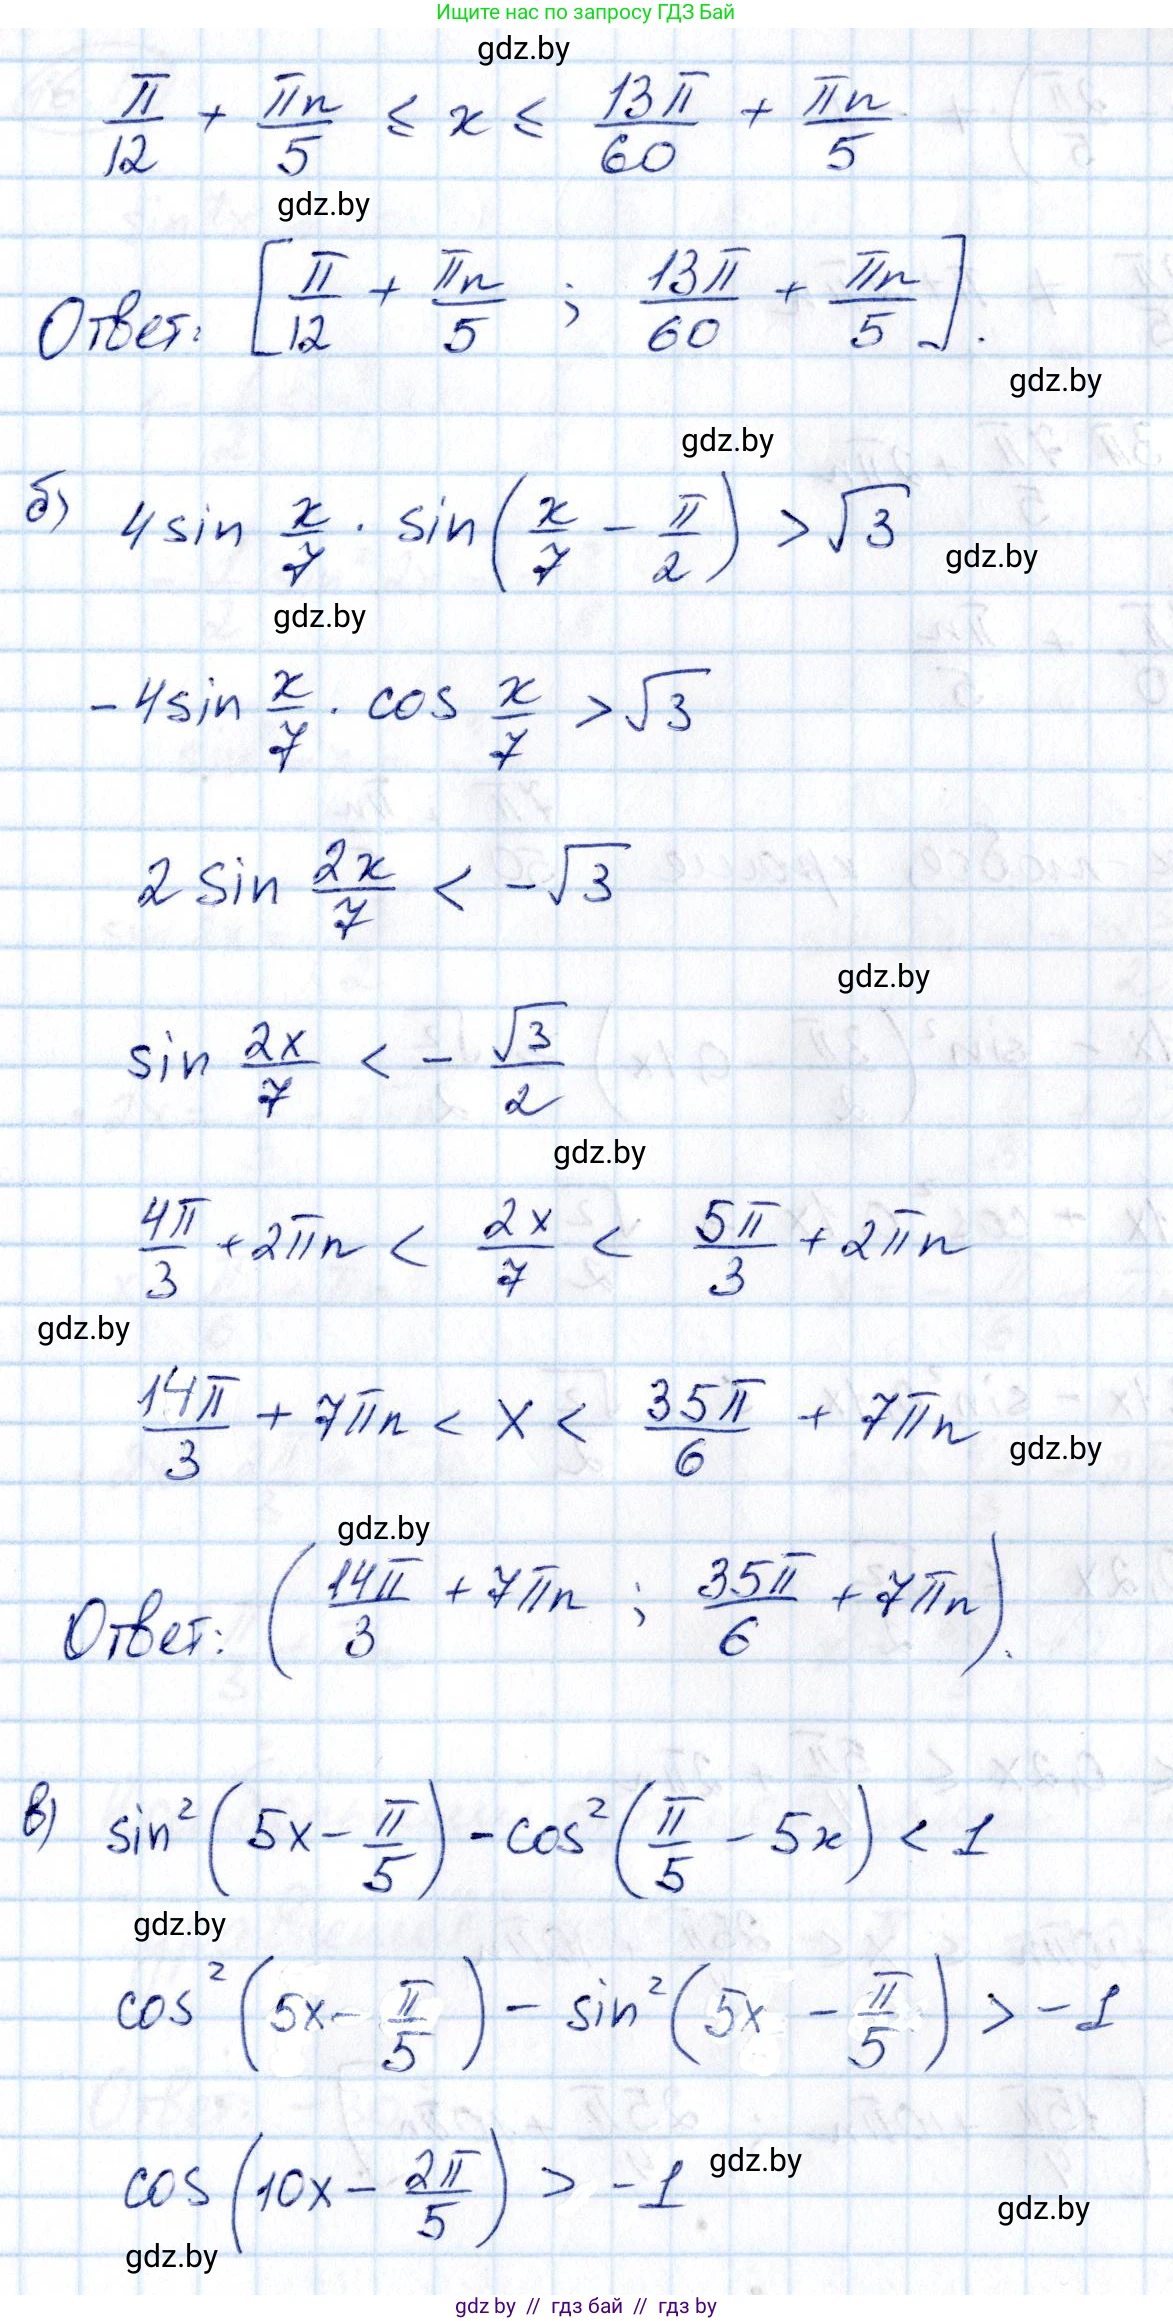 Ищите нас по запросу ГДЗ Бай
gdz.by
π/12 + πn/5 ≤ x ≤ 13π/60 + πn/5
gdz.by
Ответ: [π/12 + πn/5 ; 13π/60 + πn/5].
gdz.by
gdz.by
б) 4 sin x/7 · sin(x/7 − π/2) > √3
gdz.by
gdz.by
−4 sin x/7 · cos x/7 > √3
2 sin 2x/7 < −√3
gdz.by
sin 2x/7 < − √3/2
gdz.by
4π/3 + 2πn < 2x/7 < 5π/3 + 2πn
gdz.by
14π/3 + 7πn < x < 35π/6 + 7πn
gdz.by
gdz.by
Ответ: (14π/3 + 7πn ; 35π/6 + 7πn).
в) sin²(5x − π/5) − cos²(π/5 − 5x) < 1
gdz.by
cos²(5x − π/5) − sin²(5x − π/5) > −1
cos(10x − 2π/5) > −1
gdz.by
gdz.by
gdz.by
gdz by // гдз бай // гдз by